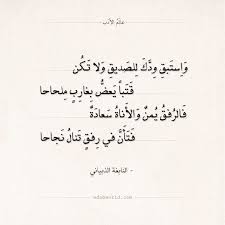 عالم الأدب
وَاِستَبقِ وِدَّكَ لِلصَديقِ وَلا تَكُن
قَتَباً يَعَضُّ بِغارِبٍ مِلحاحا
فَالرِفقُ يُمنٌ وَالأَناةُ سَعادَةٌ
فَتَأَنَّ في رِفقٍ تَنالُ نَجاحا
- النابغة الذبياني -
adabworld.com